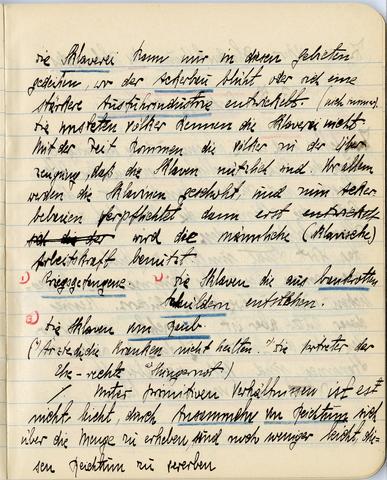 die Sklaverei kann nur in diesen gebieten
gedeihen, wo der Ackerbau blüht oder sich eine
stärkere Ausfuhrindustrie entwickelt. (noch
die meisten Völker kennen die Sklaverei nicht
Mit der Zeit kommen die Völker zu der Über
zeugung, daß die Sklaven nützlich sind. Vor allem
werden die Sklavinen geschätzt, und zum Acker
bebauen verpflichtet dann erst entwickelt
sich die der wird die männliche (Sklavische)
Arbeitskraft benützt
1) Kriegsgefangene. 2) die Sklaven die aus bankrotten
Schuldern entstehen.
3) die Sklaven um Raub.
(die Kranken nicht heilten. die
Ehe-rechts Hungersnot)
Unter primitiven Verhältnissen ist es
nicht leicht, durch Ansammeln von Reichtum sich
über die Menge zu erheben, sind noch weniger leicht, die-
sen Reichtum zu vererben